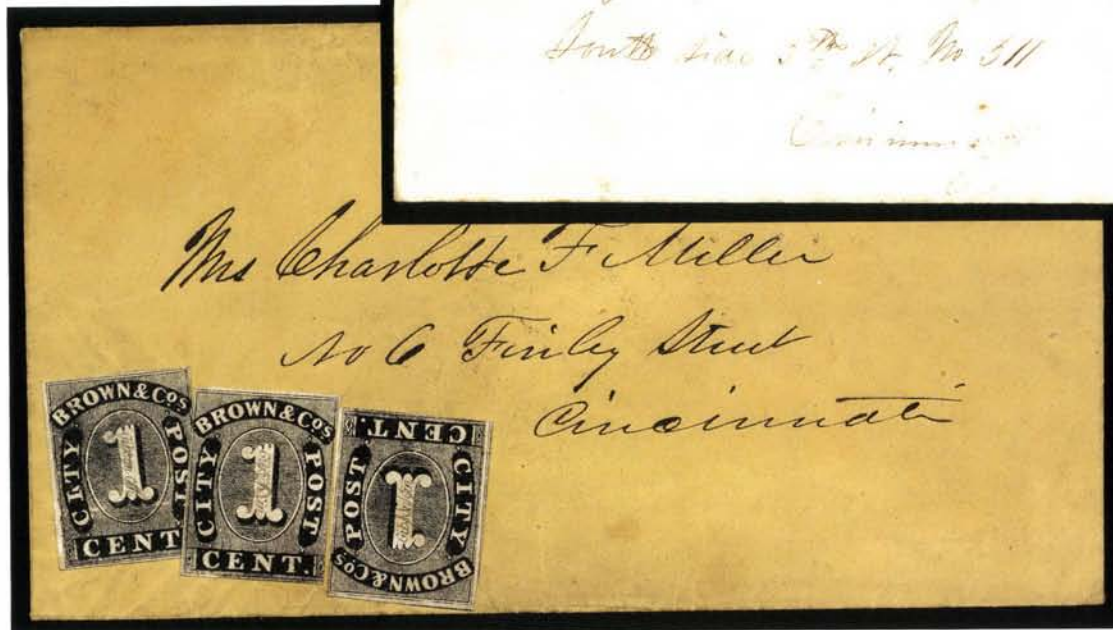 South side 5th St. No 511
Mrs Charlotte F Miller
No 6 Finley Street
Cincinnati
BROWN & COS
CITY POST
1
CENT
BROWN & COS
CITY POST
1
CENT.
BROWN & COS
CITY POST
1
CENT.